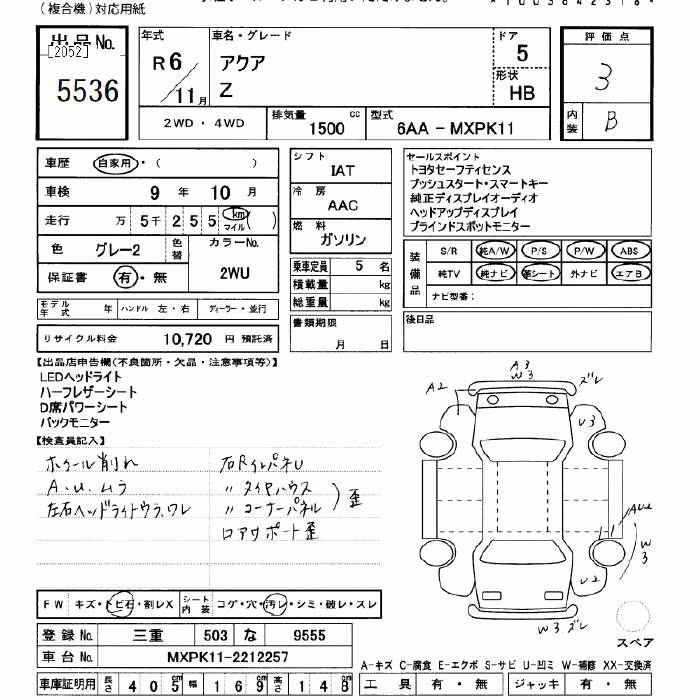 (複合機)対応用紙
出品No.
[2052]
5536
年式
R6/11月
車名・グレード
アクア
Z
ドア
5
形状
HB
評価点
3
内装
B
2WD・4WD
排気量
1500 cc
型式
6AA-MXPK11
車歴 自家用・( )
車検 9年 10月
走行 万 5千 2 5 5 km マイル ( )
色 グレー2 色替
カラーNo.
2WU
保証書 有・無
モデル年式 年 ハンドル 左・右 ディーラー・並行
リサイクル料金 10,720 円 預託済
シフト
IAT
冷房
AAC
燃料
ガソリン
乗車定員 5 名
積載量 kg
総重量 kg
書類期限
月 日
セールスポイント
トヨタセーフティセンス
プッシュスタート・スマートキー
純正ディスプレイオーディオ
ヘッドアップディスプレイ
ブラインドスポットモニター
装備品
S/R 純A/W P/S P/W ABS
純TV 純ナビ 革シート 外ナビ エアB
ナビ型番:
後日品
【出品店申告欄(不良箇所・欠品・注意事項等)】
LEDヘッドライト
ハーフレザーシート
D席パワーシート
バックモニター
【検査員記入】
ホイール削れ
A.U.ムラ
左右ヘッドライトウラ、ワレ
右RインパネU
〃タイヤハウス
〃コーナーパネル
歪
ロアサポート歪
A3
W3
ズレ
A2
U3
AU2
W3
U2
W3 ズレ
スペア
FW キズ・トビ石・割レX シート内装 コゲ・穴・汚レ・シミ・破レ・スレ
登録No. 三重 503 な 9555
車台No. MXPK11-2212257
車庫証明用 長さ 405 幅 169 高さ 148
A-キズ C-腐食 E-エクボ S-サビ U-凹ミ W-補修 XX-交換済
工具 有・無 ジャッキ 有・無